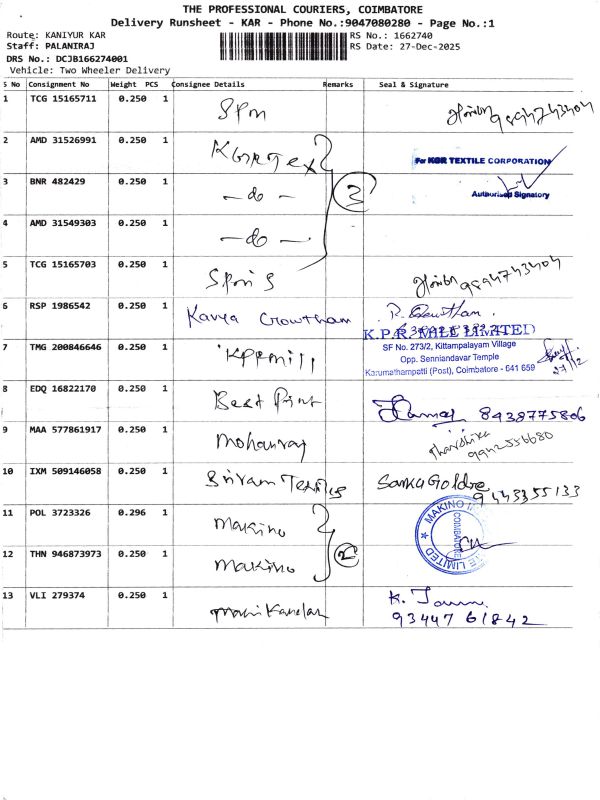 THE PROFESSIONAL COURIERS, COIMBATORE
Delivery Runsheet - KAR - Phone No.:9047080280 - Page No.:1
Route: KANIYUR KAR
RS No.: 1662740
Staff: PALANIRAJ
RS Date: 27-Dec-2025
DRS No.: DCJB166274001
Vehicle: Two Wheeler Delivery
S No Consignment No Weight PCS Consignee Details Remarks Seal & Signature
1 TCG 15165711 0.250 1 SPM 9894743404
2 AMD 31526991 0.250 1 KGR Tex For KGR TEXTILE CORPORATION
3 BNR 482429 0.250 1 - do - 3 Authorised Signatory
4 AMD 31549303 0.250 1 - do -
5 TCG 15165703 0.250 1 9894743404
6 RSP 1986542 0.250 1 Kavya Gowtham
K.P.R. MILL LIMITED
7 TMG 200846646 0.250 1 KPRmill SF No. 273/2, Kittampalayam Village
Opp. Senniandavar Temple
Karumathampatti (Post), Coimbatore - 641 659
27/12
8 EDQ 16822170 0.250 1 Best Print 8438775806
9 MAA 577861917 0.250 1 Mohanraj Tharshika
9942556680
10 IXM 509146058 0.250 1 Sriram
9443355133
11 POL 3723326 0.296 1 Makino MAKINO COIMBATORE LIMITED
12 THN 946873973 0.250 1 Makino 2
13 VLI 279374 0.250 1 Manikandan K.
9344761842